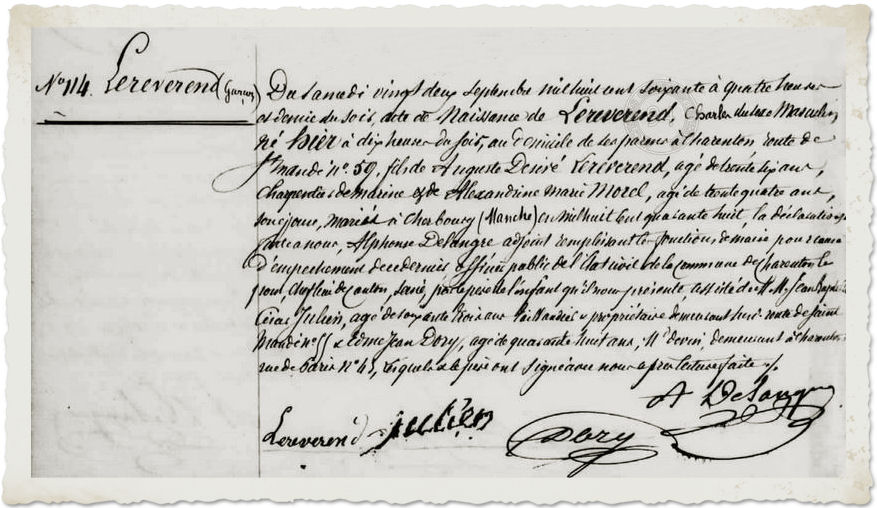 No 114. Lereverend (Garçon)
Du samedi vingt deux septembre mil huit cent soixante à quatre heures
et demie du soir, acte de Naissance de Lereverend, Charles du sexe Masculin
né hier à dix heures du soir, au domicile de ses père mère à Charenton route de
St mandé no. 59, fils de Auguste Desiré Lereverend, agé de trente six ans,
charpentier de marine et de Alexandrine marie Morel, agé de trente quatre ans,
son épouse, mariés à Cherbourg (Manche) en mil huit cent quarante huit. la déclaration
faite a nous, Alphonse Delangre adjoint remplissant les fonctions de maire pour cause
d'empechement de ce dernier, officier public de l'état civil de la commune de Charenton le
pont, Chef lieu de Canton, Seine, par le père de l'enfant qu'il nous présente assisté de M. M. Jean
Julien, agé de soixante trois ans propriétaire demeurant route de Saint
mandé no 55 et Edme Jean Dory, agé de quarante huit ans, Md de vin, demeurant à Charenton
rue de Paris No 45, lesquels et le père ont signé avec nous après lecture faite ./.
A Delangre
Lereverend Julien Dory